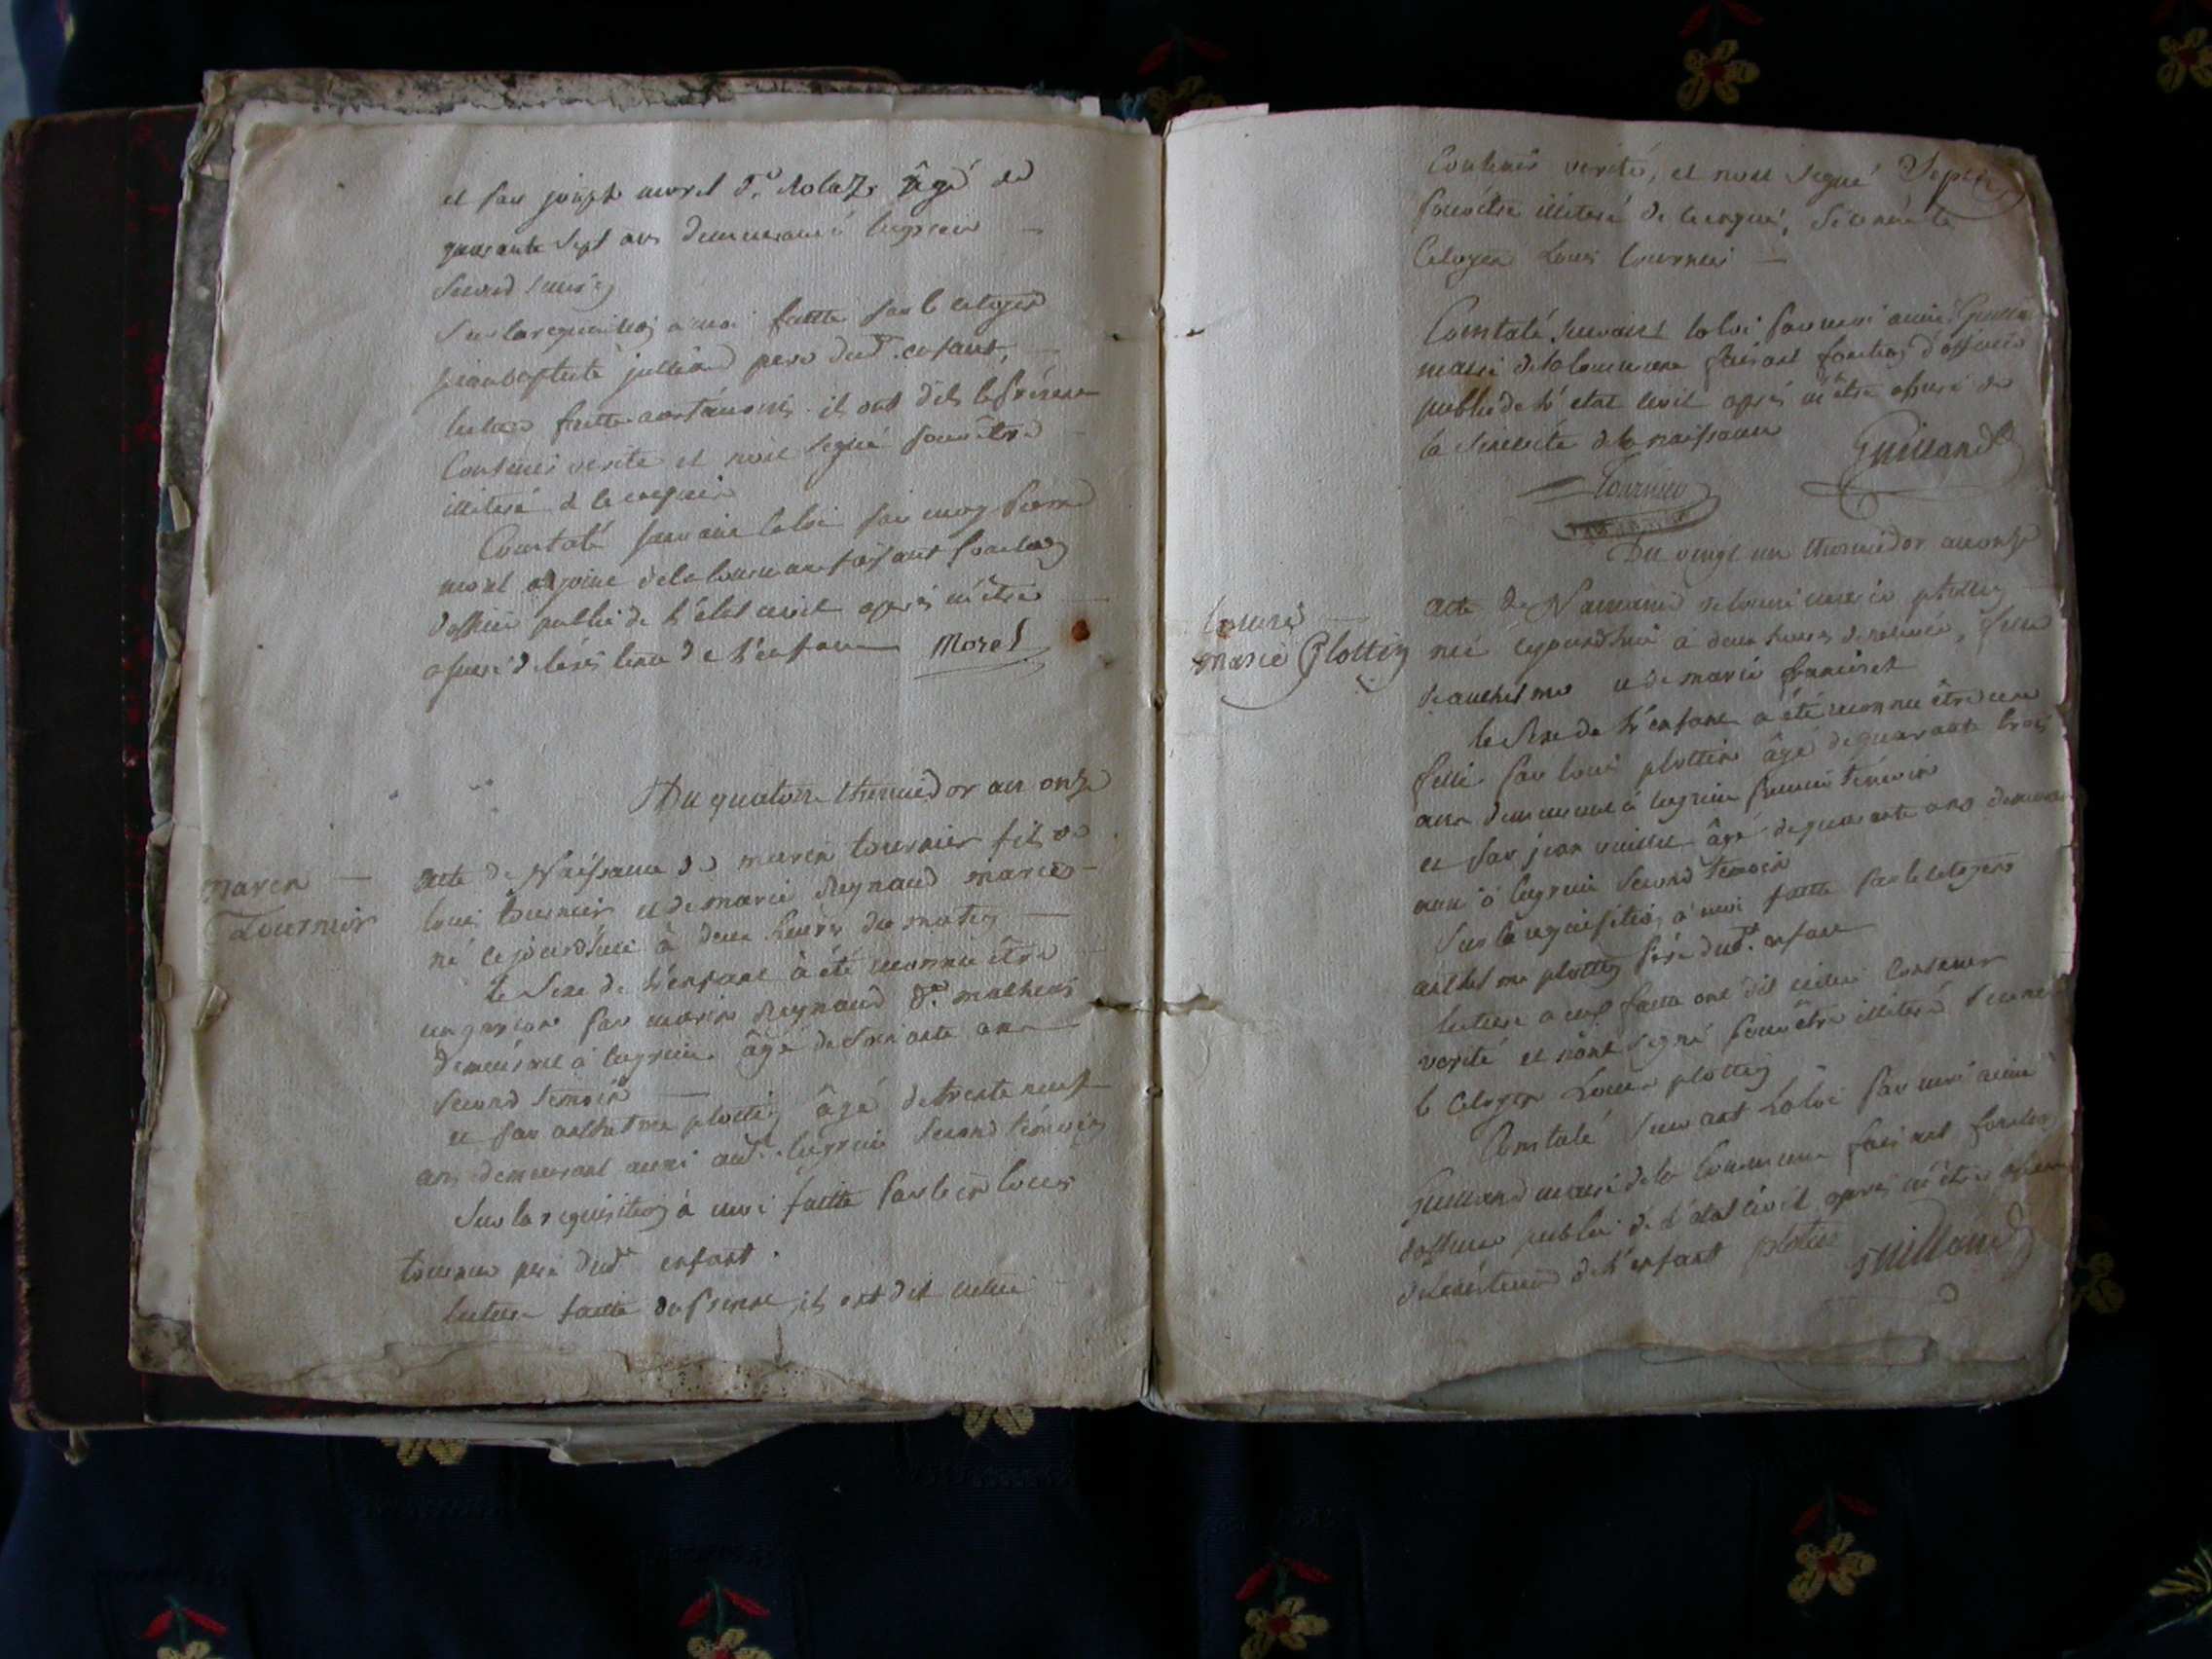 et par joseph morel d.^t Rolaz, âgé de
quarante sept ans demeurant à lugrein
second témoin
Sur la requisition à moi faitte par le citoyen
jeanbaptiste jullien père dud^t. enfant,
lecture faitte aux témoins ils ont dits le présent
Contenir verité et n'ont segné pour être
illiteré de ce enquis
Constaté suivant la loi par moy pierre
morel adjoint de la commune faisant fonction
d'officier public de l'état civil après m'être
assuré de l'existence de l'enfant Morel
Du quatorze thermidor an onze
maren
Tournier
acte de Naissance de maren tournier fils de
louis tournier et de marie Reynaud mariés
né cejourd'hui à deux heures du matin
le Sexe de l'enfant à été reconnu être
un garçon par marin Reynaud d.^t
demeurant à lugrin. âgé de soixante ans
second temoin
et par anthelme plottin âgé de trente neuf
ans demeurant aussi aud^t. lugrin second témoin
Sur la requisition à moi faitte par le cn louis
tournier père dud^t enfant.
lecture faitte du present ils ont dit icelui
Septe
Contenir verité, et n'ont segné
pour être illiteré de ce enquis, Sé signé le
Citoyen Louis tournier
Constaté suivant la loi par moi aimé Guilland
maire de la Commune faisant fonction d'officier
public de l'état civil après m'être assuré de
la sincerité de la naissance Guilland
Tournier
Du vingt un thermidor an onze
Louise
marie Plottin
acte de Naissance de louise marie plottin
née cejourd'hui à deux heures de relevée, fille
de anthelme et de marie
le Sexe de l'enfant a été reconnu être une
fille par louis plottin âgé de quarante trois
ans demeurant à lugrin premier témoin
et par jean âgé de quarante ans demeu
rant à lugrin second témoin
Sur la requisition à moi faitte par le citoyen
anthelme plottin père dud^t. enfant
lecture a eux faitte ont dit icelui Contenir
verité et n'ont segné pour être illiteré
le citoyen Louis plottin
Constaté suivant la loi par moi aimé
Guilland maire de la Commune faisant fonction
d'officier public de l'état civil après m'être assuré
de l'existence de l'enfant plotin Guilland